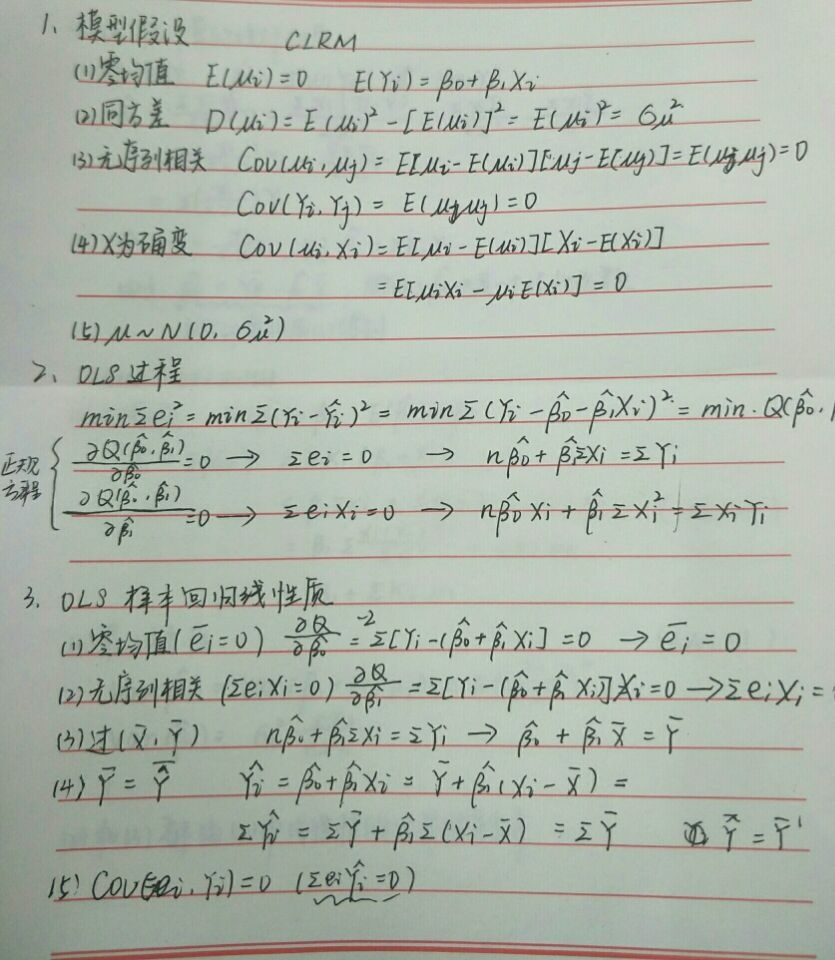 1、模型假设 CLRM
(1)零均值 E(μi)=0 E(Yi)=β0+β1Xi
(2)同方差 D(μi)=E(μi)²-[E(μi)]²=E(μi)²=6μ²
(3)无序列相关 Cov(μi,μj)=E[μi-E(μi)][μj-E(μj)]=E(μiμj)=0
Cov(Yi,Yj)=E(μiμj)=0
(4)X为确变 Cov(μi,Xi)=E[μi-E(μi)][Xi-E(Xi)]
=E[μiXi-μiE(Xi)]=0
(5)μ~N(0,6μ²)
2、OLS过程
minΣei²=minΣ(Yi-Ŷi)²=minΣ(Yi-β̂0-β̂1Xi)²=min.Q(β̂0,
正规方程 ∂Q(β̂0,β̂1)/∂β̂0=0→Σei=0→nβ̂0+β̂1ΣXi=ΣYi
∂Q(β̂0,β̂1)/∂β̂1=0→ΣeiXi=0→nβ̂0Xi+β̂1ΣXi²=ΣXiYi
3、OLS样本回归线性质
(1)零均值(ēi=0) ∂Q/∂β̂0=-2Σ[Yi-(β̂0+β̂1Xi]=0→ēi=0
(2)无序列相关(ΣeiXi=0) ∂Q/∂β̂1=Σ[Yi-(β̂0+β̂1Xi)]Xi=0→ΣeiXi=
(3)过(X̄,Ȳ) nβ̂0+β̂1ΣXi=ΣYi→β̂0+β̂1X̄=Ȳ
(4)Ȳ=Ŷ̄ Ŷi=β̂0+β̂1Xi=Ȳ+β̂1(Xi-X̄)=
ΣŶi=ΣȲ+β̂1Σ(Xi-X̄)=ΣȲ Ŷ̄=Ȳ
(5)COV(ei,Yi)=0 (ΣeiŶi=0)